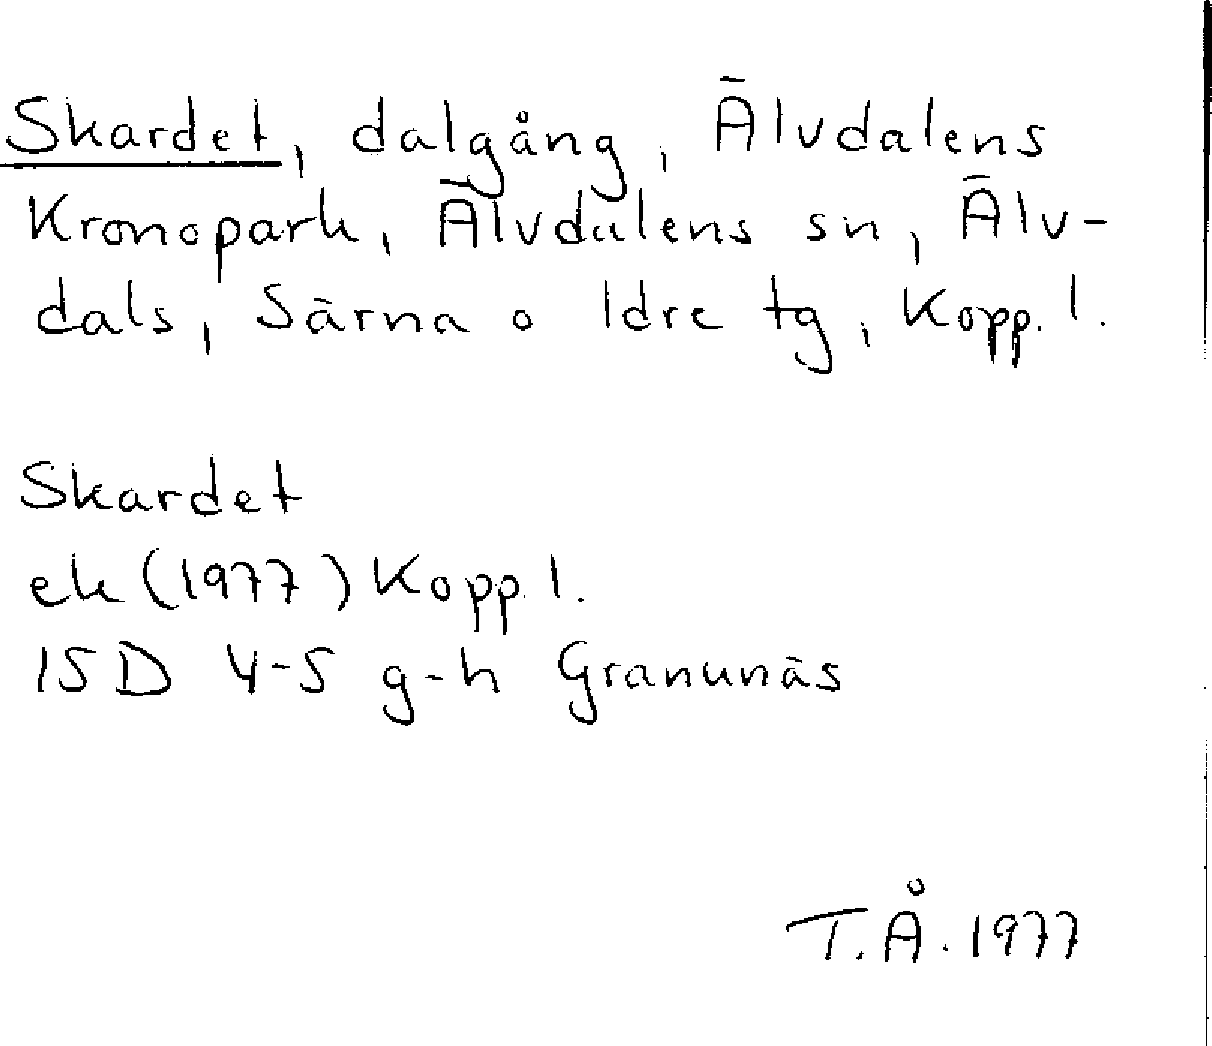 Skardet, dalgång, Älvdalens
Kronopark, Älvdalens sn, Älv-
dals, Särna o Idre tg, Kopp. l.
Skardet
ek (1977) Kopp. l.
15D 4-5 g-h Granunäs
T.Å. 1977